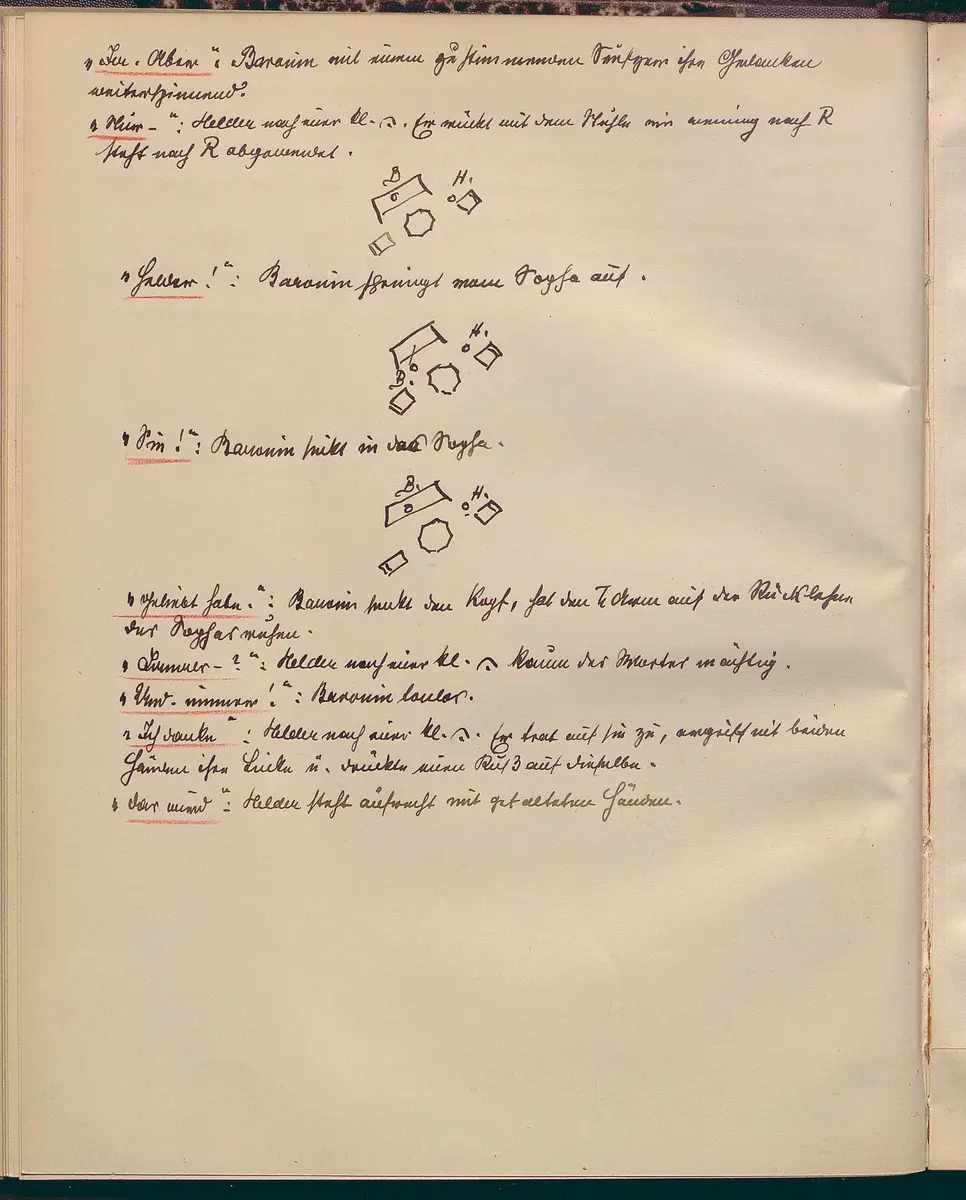 „Ja. Aber“: Baronin mit einem zustimmenden Seufzer ihre Gedanken
weiterspinnend.
„Nur –“: Helder nach einer kl. Er rückt mit dem Stuhle ein wenig nach R
steht nach R abgewendet.
B H.
„Helder!“: Baronin springt vom Sopha auf.
H.
B.
„Sie!“: Baronin sinkt in das Sopha.
B. H.
„geliebt habe.“: Baronin senkt den Kopf, hat den Arm auf der Rücklehne
des Sophas ruhen.
„Immer – ?“: Helder nach einer kl. kaum des Wortes mächtig.
„Und immer!“: Baronin tonlos.
„Ich danke“: Helder nach einer kl. Er trat auf sie zu, ergriff mit beiden
Händen ihre Linke u. drückte einen Kuß auf dieselbe.
„das wird“: Helder steht aufrecht mit gefalteten Händen.